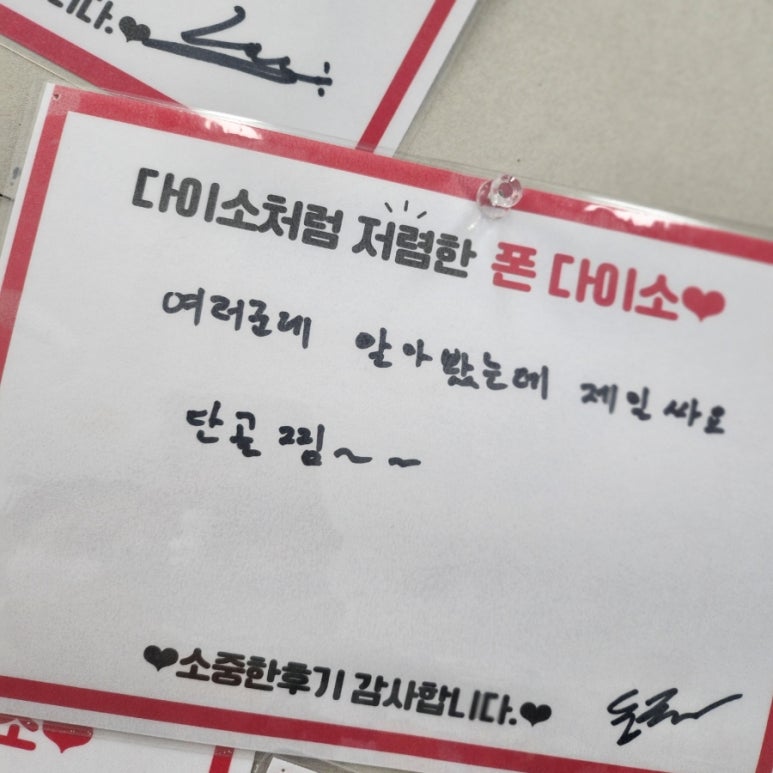 니다.❤
다이소처럼 저렴한 폰 다이소❤
여러군데 알아봤는데 제일 싸요
단골 찜~~
❤소중한후기 감사합니다.❤
소❤